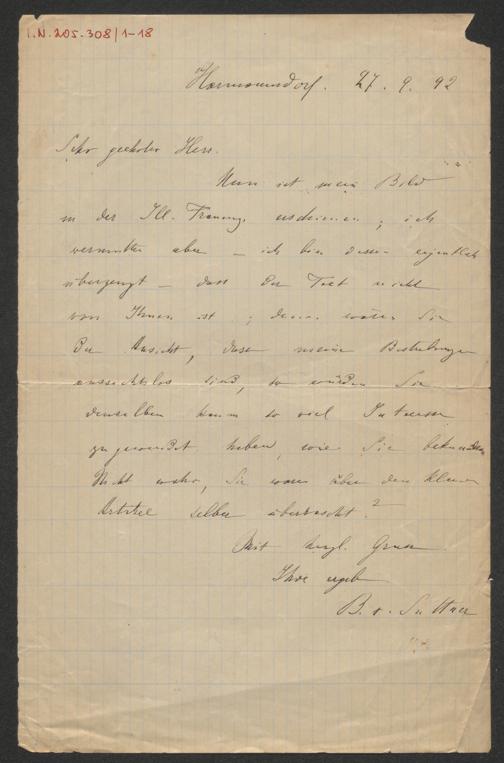 I.N. 205.308/1-18
Harmannsdorf. 27. 9. 92
Sehr geehrter Herr.
Nun ist mein Bild
in der Ill. Frauenz. erschienen; ich
vermuthe aber – ich bin dessen eigentlich
überzeugt – dass der Text nicht
von Ihnen ist; denn wären Sie
der Ansicht, dass meine Bestrebungen
aussichtslos sind, so würden Sie
denselben kaum so viel Interesse
zugewendet haben, wie Sie bekunden
Nicht wahr, Sie waren über den kleinen
Artikel selber überrascht?
Mit Gruss
Ihre ergeb
B. v. Suttner